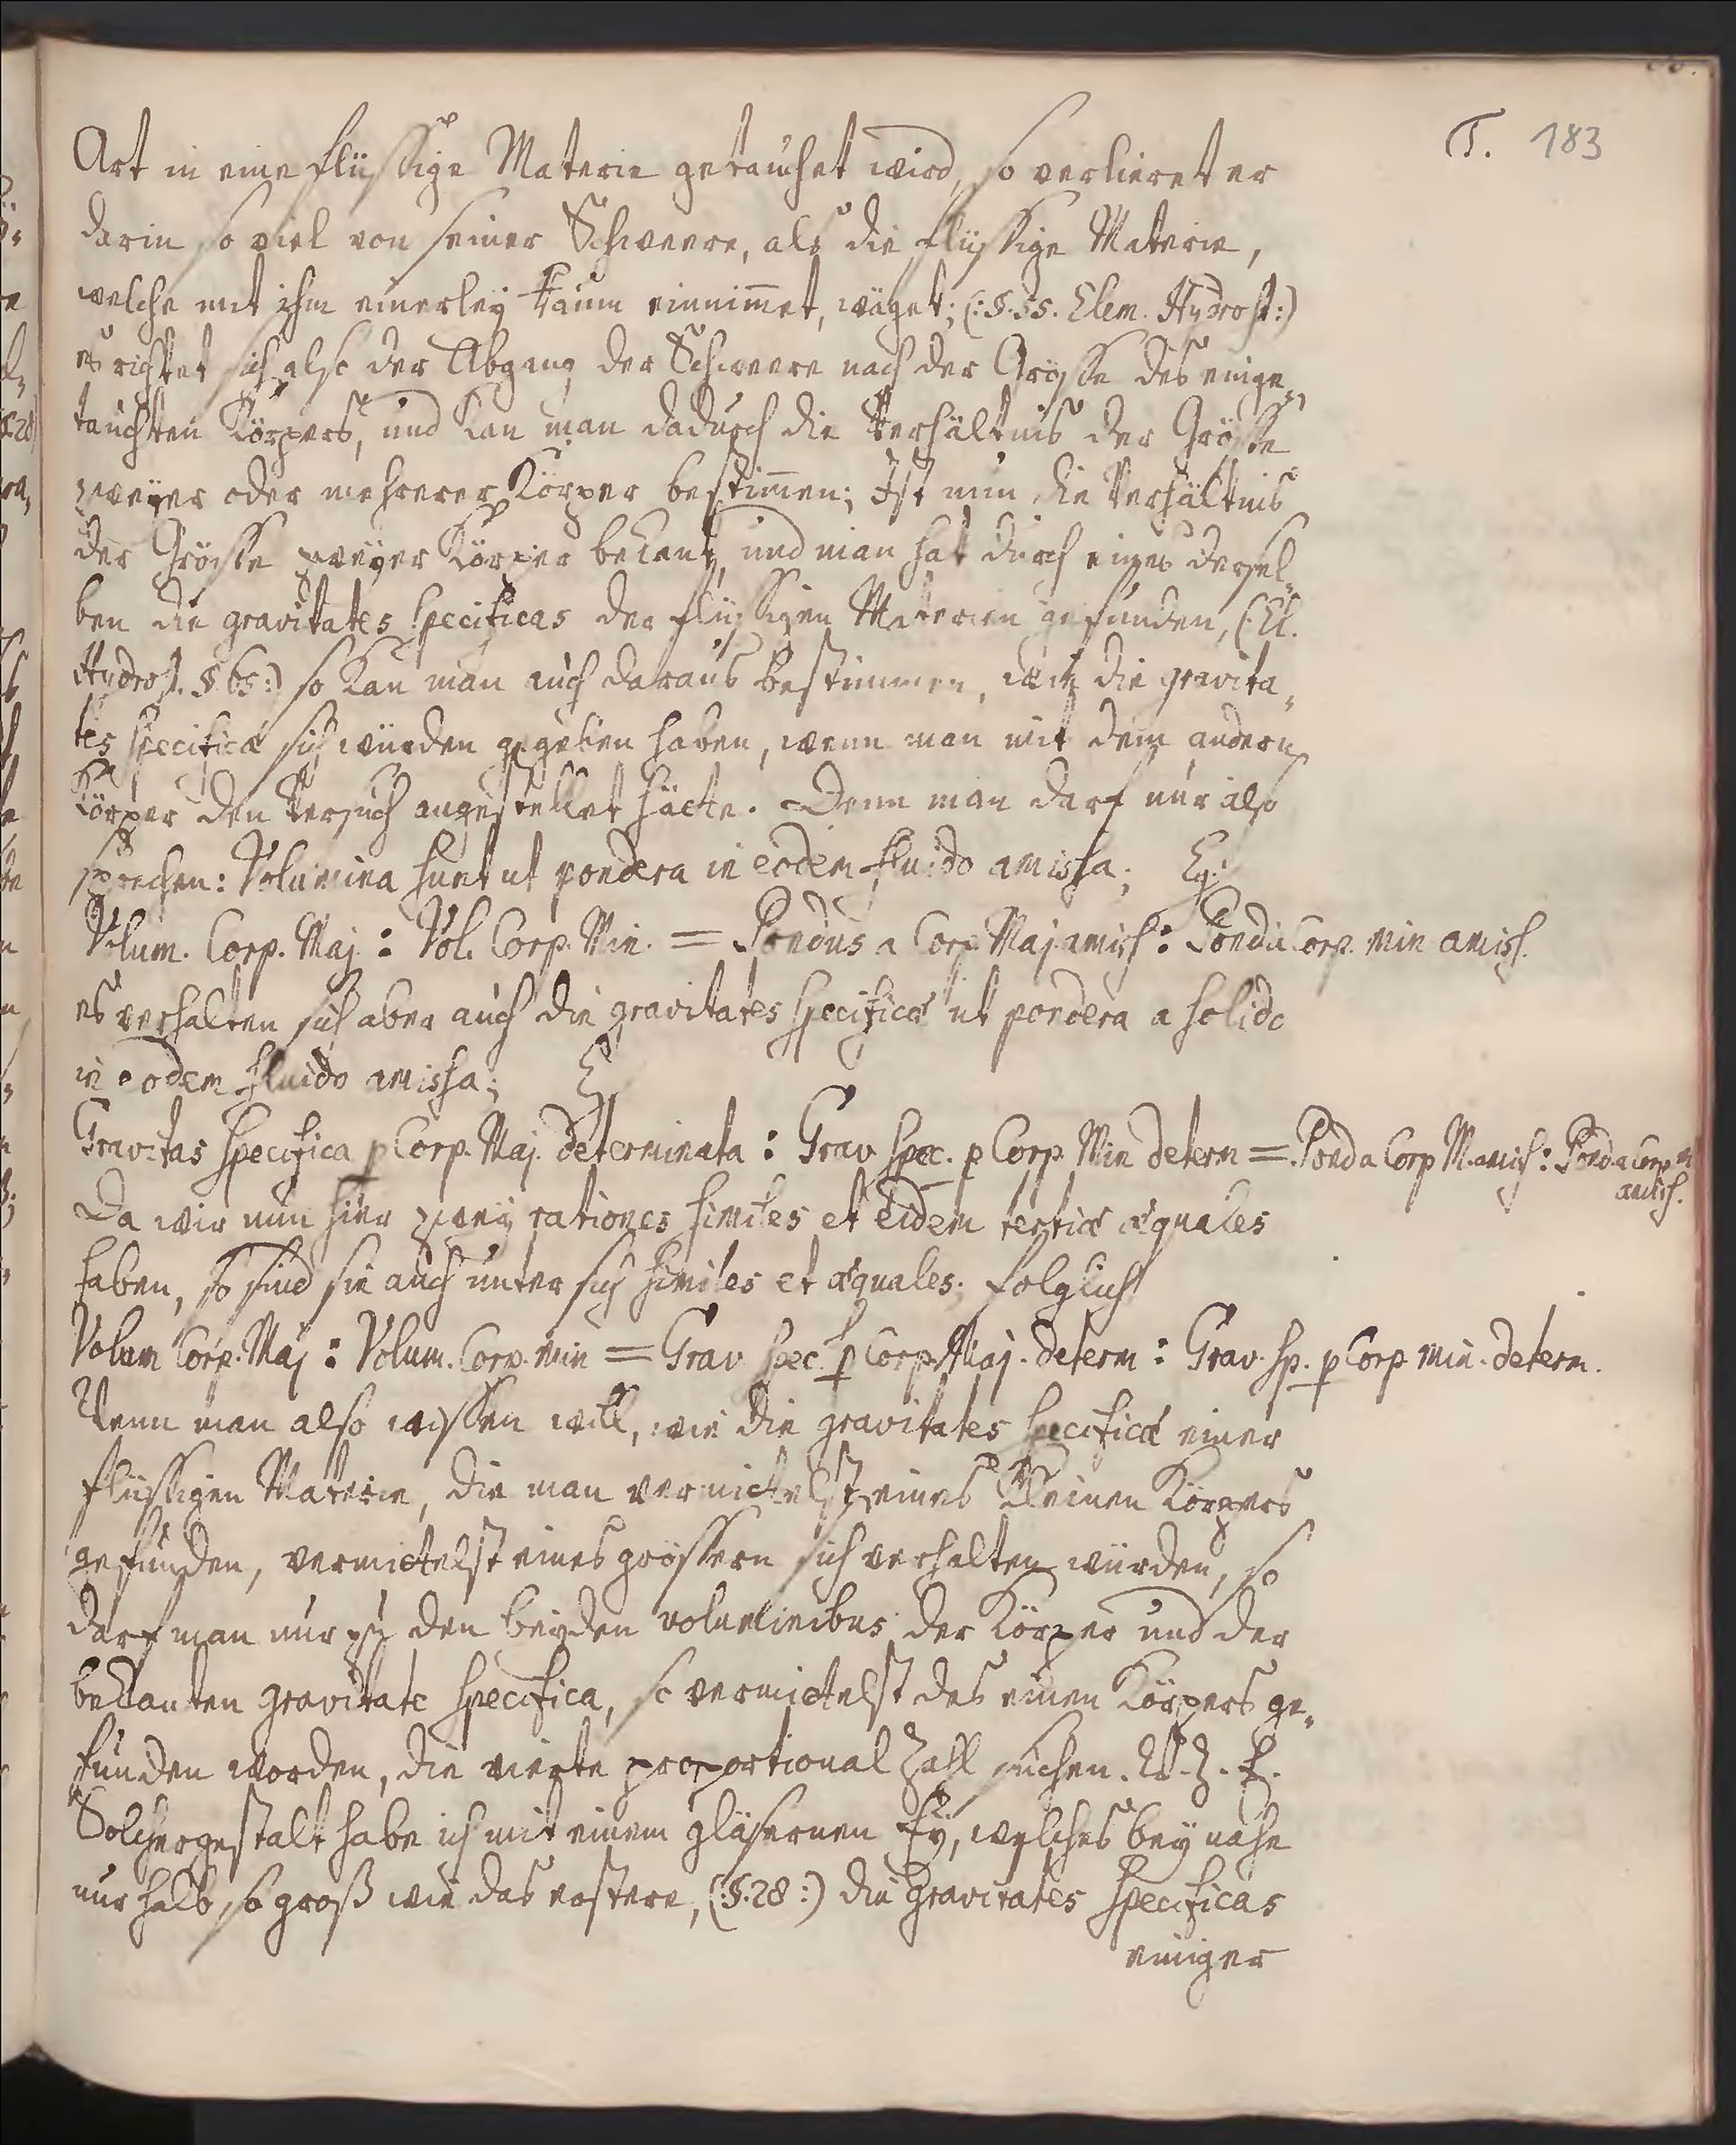 T. 183
Art in eine flüssige Materie getauchet wird, so verlieret er
darin so viel von seiner Schweere, als die flüssige Materie,
welche mit ihm einerley Raum einnimmet, wäget; (:§.55. Elem. Hydrost:)
es richtet sich also der Abgang der Schweere nach der Grösse des einge„
tauchten Körpers, und kan man dadurch die Verhältnis der Grösse
zweyer oder mehrerer Körper bestimmen; Ist nun die Verhältnis
der Grösse zweyer Körper bekant, und man hat durch eines dersel„
ben die gravitates specificas der flüssigen Materien gefunden, (:El.
Hydrost. §65:) so kan man auch daraus bestimmen, wie die gravita„
tes specificæ sich würden gegeben haben, wenn man mit dem andern
Körper den Versuch angestellet hätte. Denn man darf nur also
sprechen: Volumina sunt ut pondera in eodem fluido amissa; Eg:
Volum. Corp. Maj : Vol. Corp. Min. = Pondus a Corp Maj amiss : Pond a Corp. min amiss.
es verhalten sich aber auch die gravitates specificæ ut pondera a solido
in eodem fluido amissa; E
Gravitas specifica p Corp. Maj. determinata : Grav spec. p Corp Min determ = Pond a Corp M. amiss : Pond. a Corp m
amiss.
Da wir nun hier zwey rationes similes et eidem tertiæ æquales
haben, so sind sie auch unter sich similes et æquales; folglich
Volum Corp. Maj : Volum. Corp. min = Grav spec. p Corp Maj. determ : Grav. sp. p Corp min. determ.
Wenn man also wissen will, wie die gravitates specificæ einer
flüssigen Materie, die man vermittelst eines kleinen Körpers
gefunden, vermittelst eines grössern sich verhalten würden, so
darf man nur zu den beyden voluminibus der Körper und der
bekanten gravitate specifica, so vermittelst des einen Körpers ge„
funden worden, die vierte proportional Zahl suchen. W. Z. E.
Solchergestalt habe ich mit einem gläsernen Ey, welches bey nahe
nur halb so groß wie das erstere, (:§.28:) die Gravitates specificas
einiger